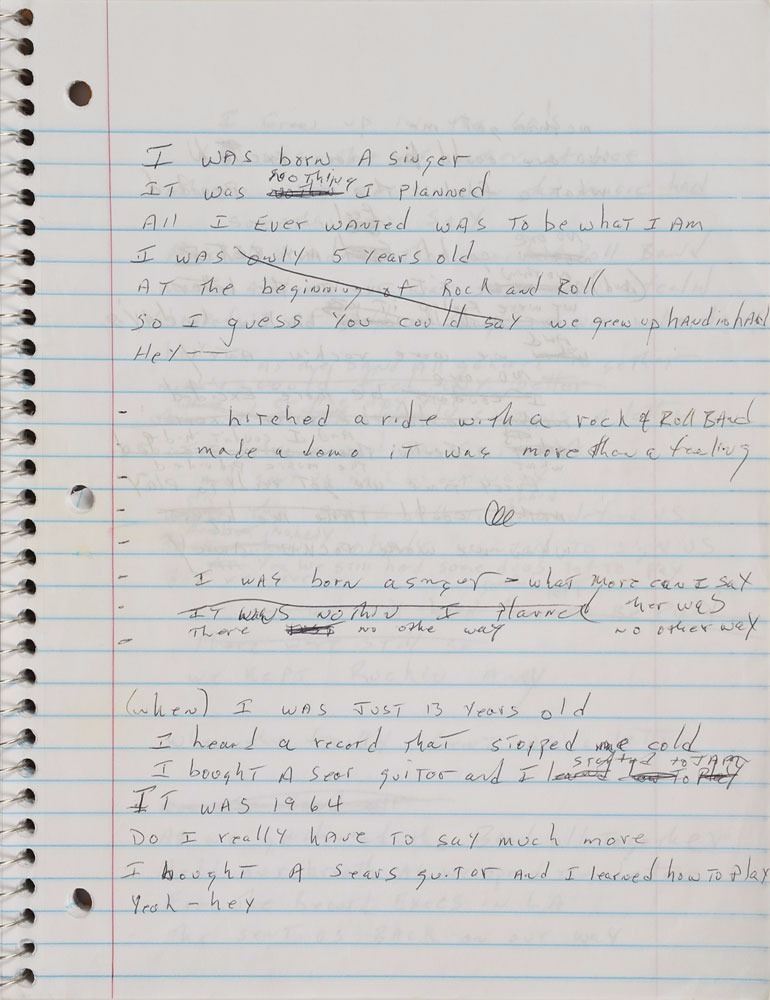 I was born A singer
IT was nothing I planned
All I Ever wanted was To be what I Am
I was only 5 years old
AT the beginning of Rock and Roll
So I guess you could say we grew up hand in hand
Hey —
- hitched a ride with a rock & Roll BAnd
made a demo iT was more than a feeling
-
-
-
- I was born a singer - what more can I say
IT was nothin I Planned her was
There no othe way no other way
-
(when) I was JUST 13 years old
I heard a record that stopped me cold
started to JAM
I bought A sear guitor and I learned to Play
IT was 1964
Do I really have To say much more
I bought A Sears guitor And I learned how To Play
Yeah - hey